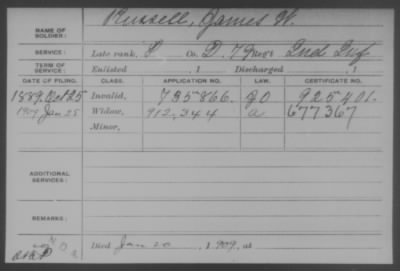 Russell, James W.
NAME OF SOLDIER:
SERVICE: Late rank, P Co. D, 79 Reg't Ind. Inf
TERM OF SERVICE: Enlisted , 1 Discharged , 1
DATE OF FILING. CLASS. APPLICATION NO. LAW. CERTIFICATE NO.
1889. Oct 25 Invalid, 735866. 925401.
1909 Jan 25 Widow, 912,344 a 677367
Minor,
ADDITIONAL SERVICES:
REMARKS:
Died Jan 20 , 1909, at